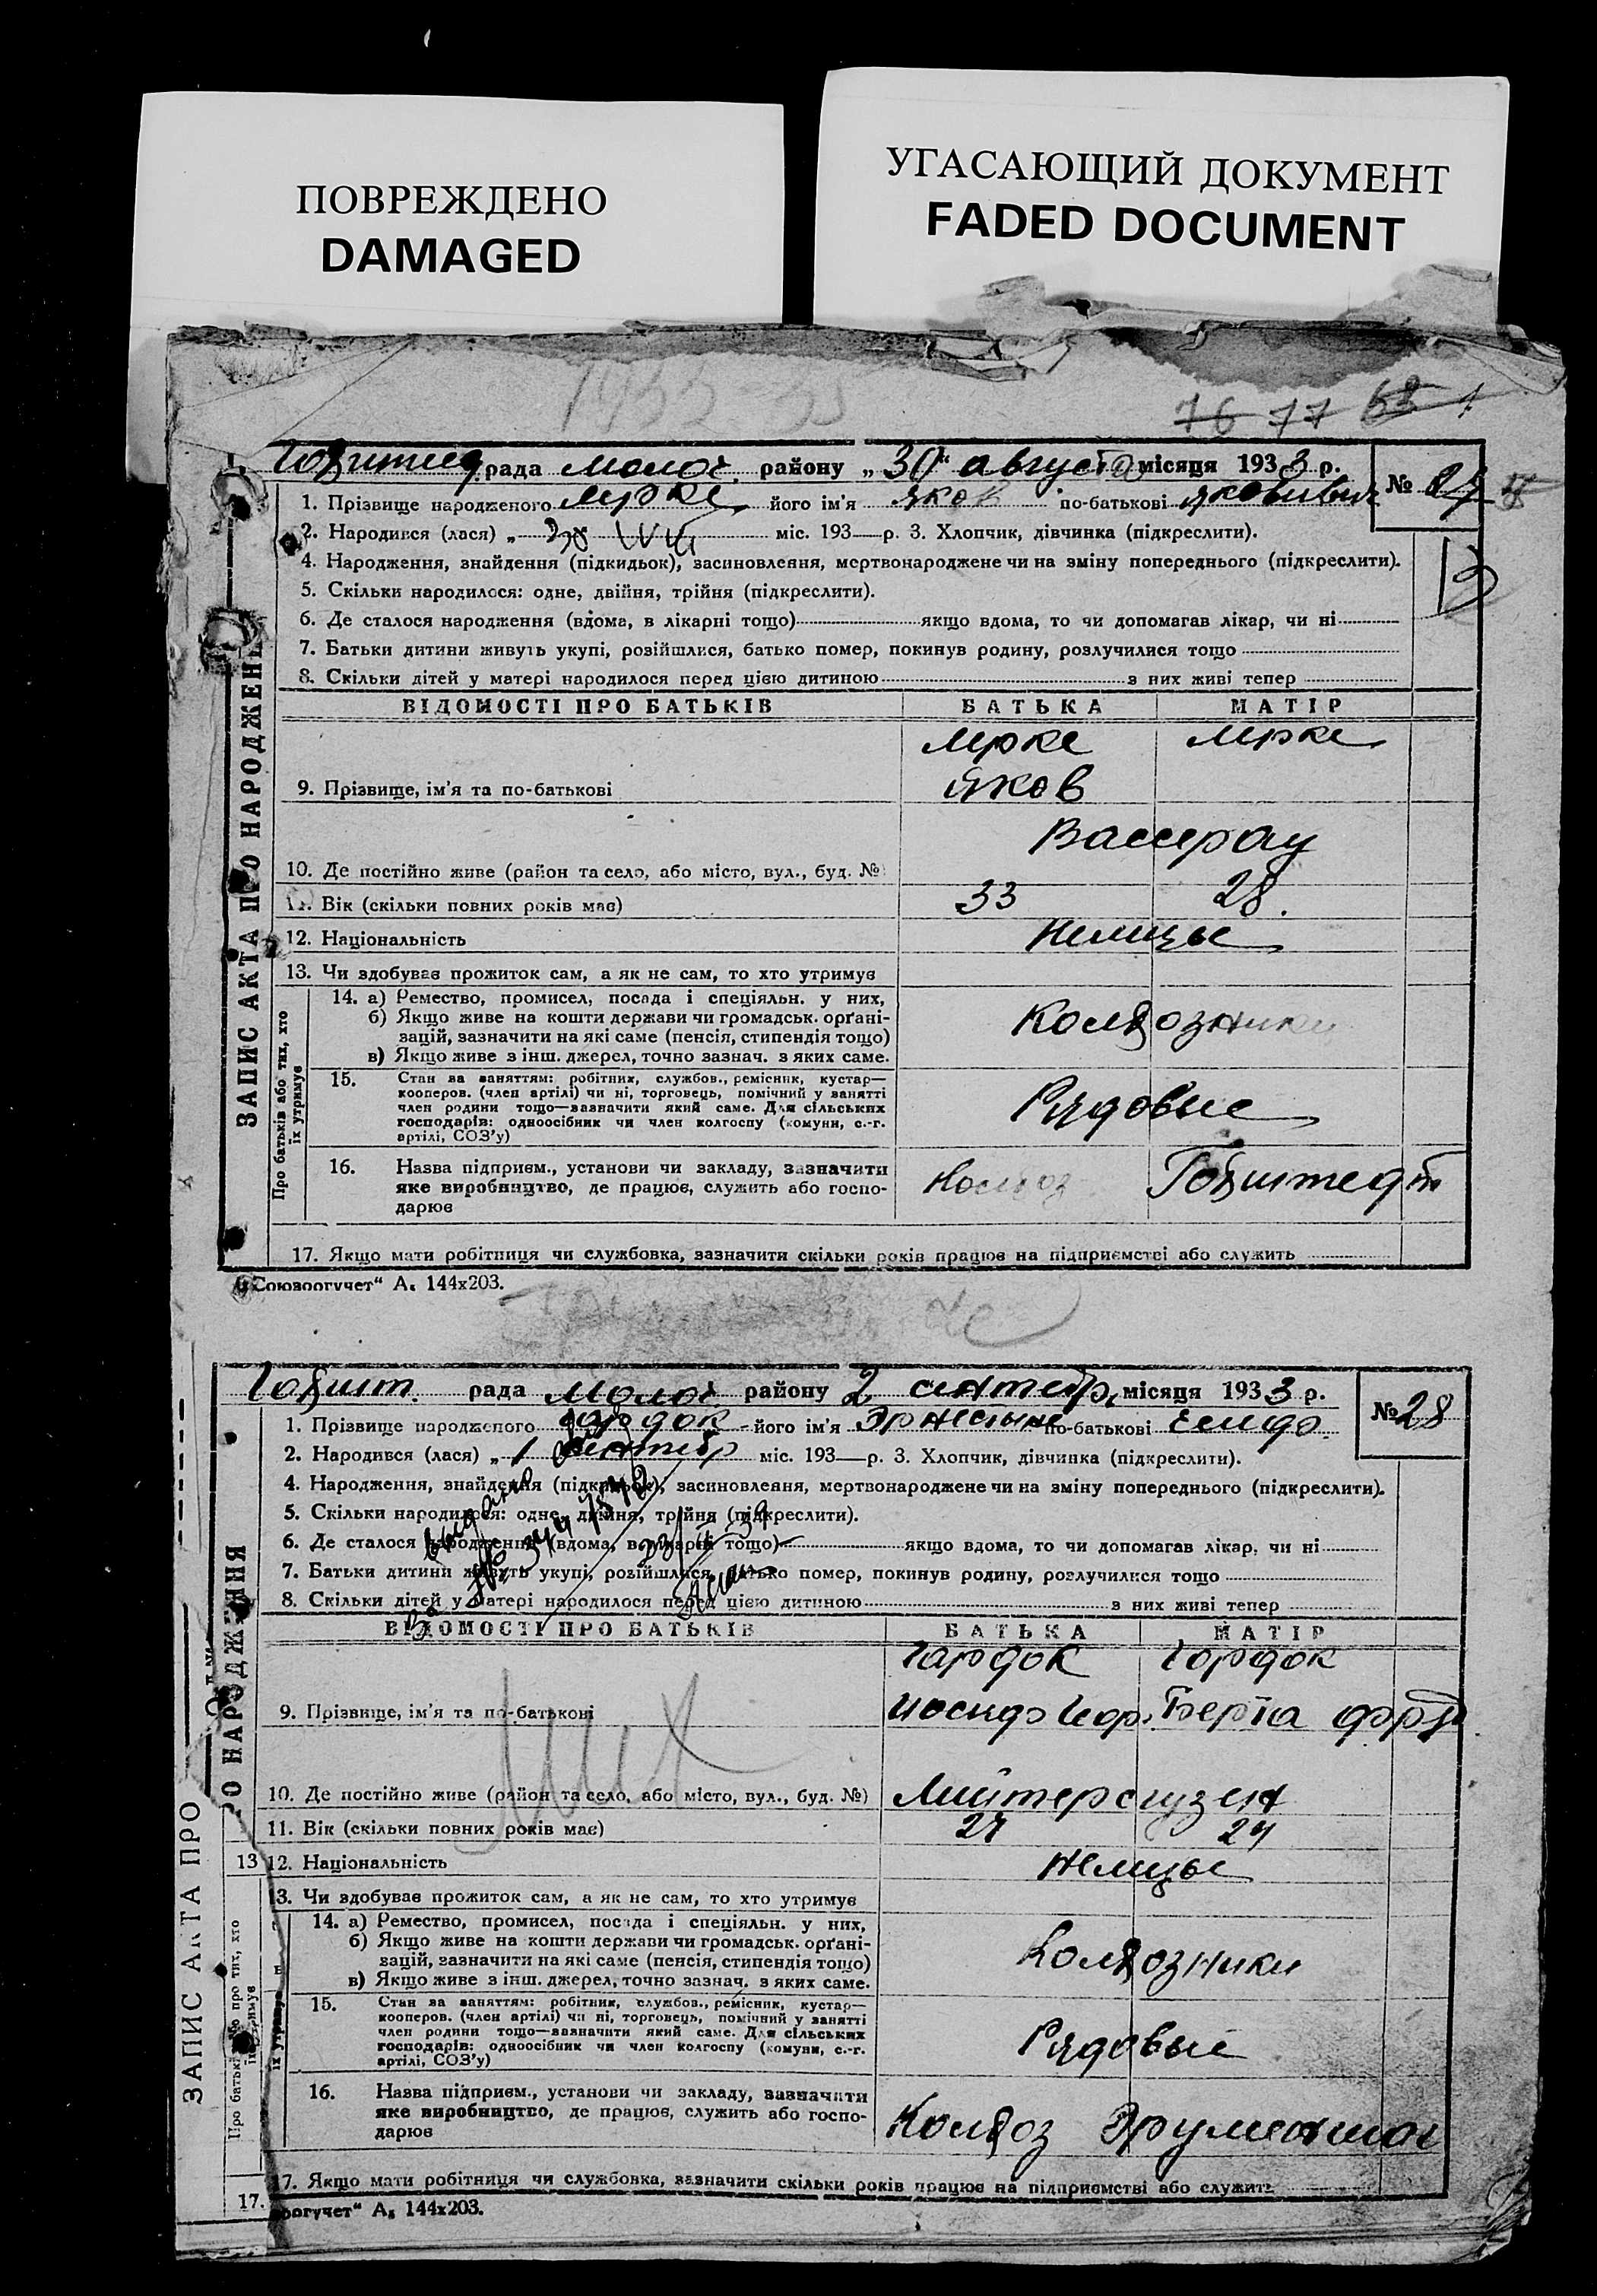 ПОВРЕЖДЕНО
DAMAGED
УГАСАЮЩИЙ ДОКУМЕНТ
FADED DOCUMENT
76 77 68
рада Молоч. району „30“ августа місяця 1933 р.
№ 27
1. Прізвище народженого його ім'я Яков по-батькові Яковлевич
2. Народився (лася) „ міс. 193 р. 3. Хлопчик, дівчинка (підкреслити).
4. Народження, знайдення (підкидьок), засиновлення, мертвонароджене чи на зміну попереднього (підкреслити).
5. Скільки народилося: одне, двійня, трійня (підкреслити).
6. Де сталося народження (вдома, в лікарні тощо) якщо вдома, то чи допомагав лікар, чи ні
7. Батьки дитини живуть укупі, розійшлися, батько помер, покинув родину, розлучилися тощо
8. Скільки дітей у матері народилося перед цією дитиною з них живі тепер
ЗАПИС АКТА ПРО НАРОДЖЕН
ВІДОМОСТІ ПРО БАТЬКІВ БАТЬКА МАТІР
Яков
9. Прізвище, ім'я та по-батькові
Вассерау
10. Де постійно живе (район та село, або місто, вул., буд. №
11. Вік (скільки повних років має) 33 28.
12. Національність Немцы
13. Чи здобуває прожиток сам, а як не сам, то хто утримує
Про батьків або тих, хто їх утримує
14. а) Ремество, промисел, посада і спеціяльн. у них,
б) Якщо живе на кошти держави чи громадськ. орґані-
зацій, зазначити на які саме (пенсія, стипендія тощо)
в) Якщо живе з інш. джерел, точно зазнач. з яких саме.
Колхозники
15. Стан за заняттям: робітник, службов., ремісник, кустар—
кооперов. (член артілі) чи ні, торговець, помічний у занятті
член родини тощо—зазначити який саме. Для сільських
господарів: одноосібник чи член колгоспу (комуни, с.-г.
артілі, СОЗ'у)
Рядовые
16. Назва підприєм., установи чи закладу, зазначити
яке виробництво, де працює, служить або госпо-
дарює
Колхоз Гохштедт
17. Якщо мати робітниця чи службовка, зазначити скільки років працює на підприємстві або служить
„Союзоргучет“ А₅ 144х203.
Гохшт. рада Молоч. району 2 сентябр. місяця 1933 р.
№ 28
1. Прізвище народженого його ім'я Эрнестына по-батькові
2. Народився (лася) „ 1 сентябр міс. 193 р. 3. Хлопчик, дівчинка (підкреслити).
4. Народження, знайдення (підкидьок), засиновлення, мертвонароджене чи на зміну попереднього (підкреслити).
5. Скільки народилося: одне, двійня, трійня (підкреслити).
6. Де сталося народження (вдома, в лікарні тощо) якщо вдома, то чи допомагав лікар, чи ні
7. Батьки дитини живуть укупі, розійшлися, батько помер, покинув родину, розлучилися тощо
8. Скільки дітей у матері народилося перед цією дитиною з них живі тепер
О НАРОДЖЕННЯ
ВІДОМОСТІ ПРО БАТЬКІВ БАТЬКА МАТІР
Гардок Гордок
9. Прізвище, ім'я та по-батькові Берта
10. Де постійно живе (район та село, або місто, вул., буд. №)
11. Вік (скільки повних років має) 27 24
13
12. Національність Немцы
13. Чи здобуває прожиток сам, а як не сам, то хто утримує
14. а) Ремество, промисел, посада і спеціяльн. у них,
б) Якщо живе на кошти держави чи громадськ. орґані-
зацій, зазначити на які саме (пенсія, стипендія тощо)
в) Якщо живе з інш. джерел, точно зазнач. з яких саме.
Колхозники
ЗАПИС АКТА ПРО
15. Стан за заняттям: робітник, службов., ремісник, кустар—
кооперов. (член артілі) чи ні, торговець, помічний у занятті
член родини тощо—зазначити який саме. Для сільських
господарів: одноосібник чи член колгоспу (комуни, с.-г.
артілі, СОЗ'у)
Рядовые
16. Назва підприєм., установи чи закладу, зазначити
яке виробництво, де працює, служить або госпо-
дарює
Колхоз
17. Якщо мати робітниця чи службовка, зазначити скільки років працює на підприємстві або служить
17.
оргучет“ А₅ 144х203.